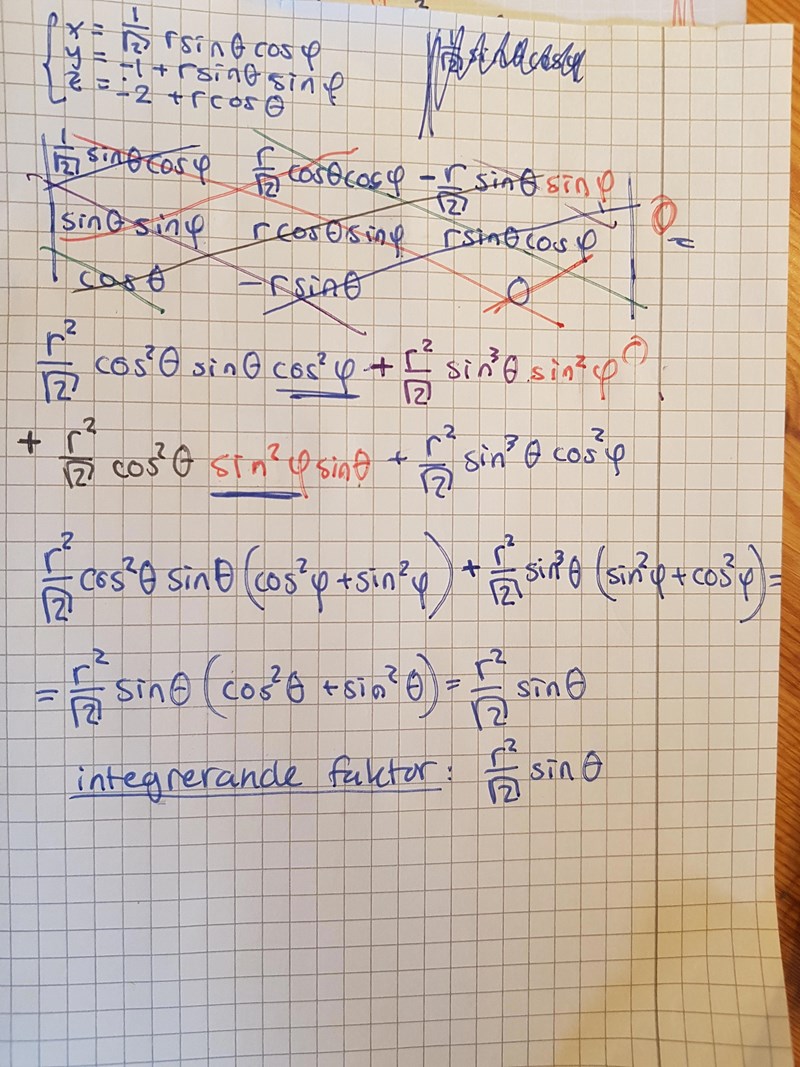 x = 1/√2 r sinθ cosφ
y = -1 + r sinθ sinφ
z = -2 + r cosθ
1/√2 sinθ cosφ r/√2 cosθ cosφ - r/√2 sinθ sinφ
sinθ sinφ r cosθ sinφ r sinθ cosφ =
cosθ - r sinθ 0
r²/√2 cos²θ sinθ cos²φ + r²/√2 sin³θ sin²φ
+ r²/√2 cos²θ sin²φ sinθ + r²/√2 sin³θ cos²φ
r²/√2 cos²θ sinθ (cos²φ + sin²φ) + r²/√2 sin³θ (sin²φ + cos²φ) =
= r²/√2 sinθ (cos²θ + sin²θ) = r²/√2 sinθ
integrerande faktor: r²/√2 sinθ